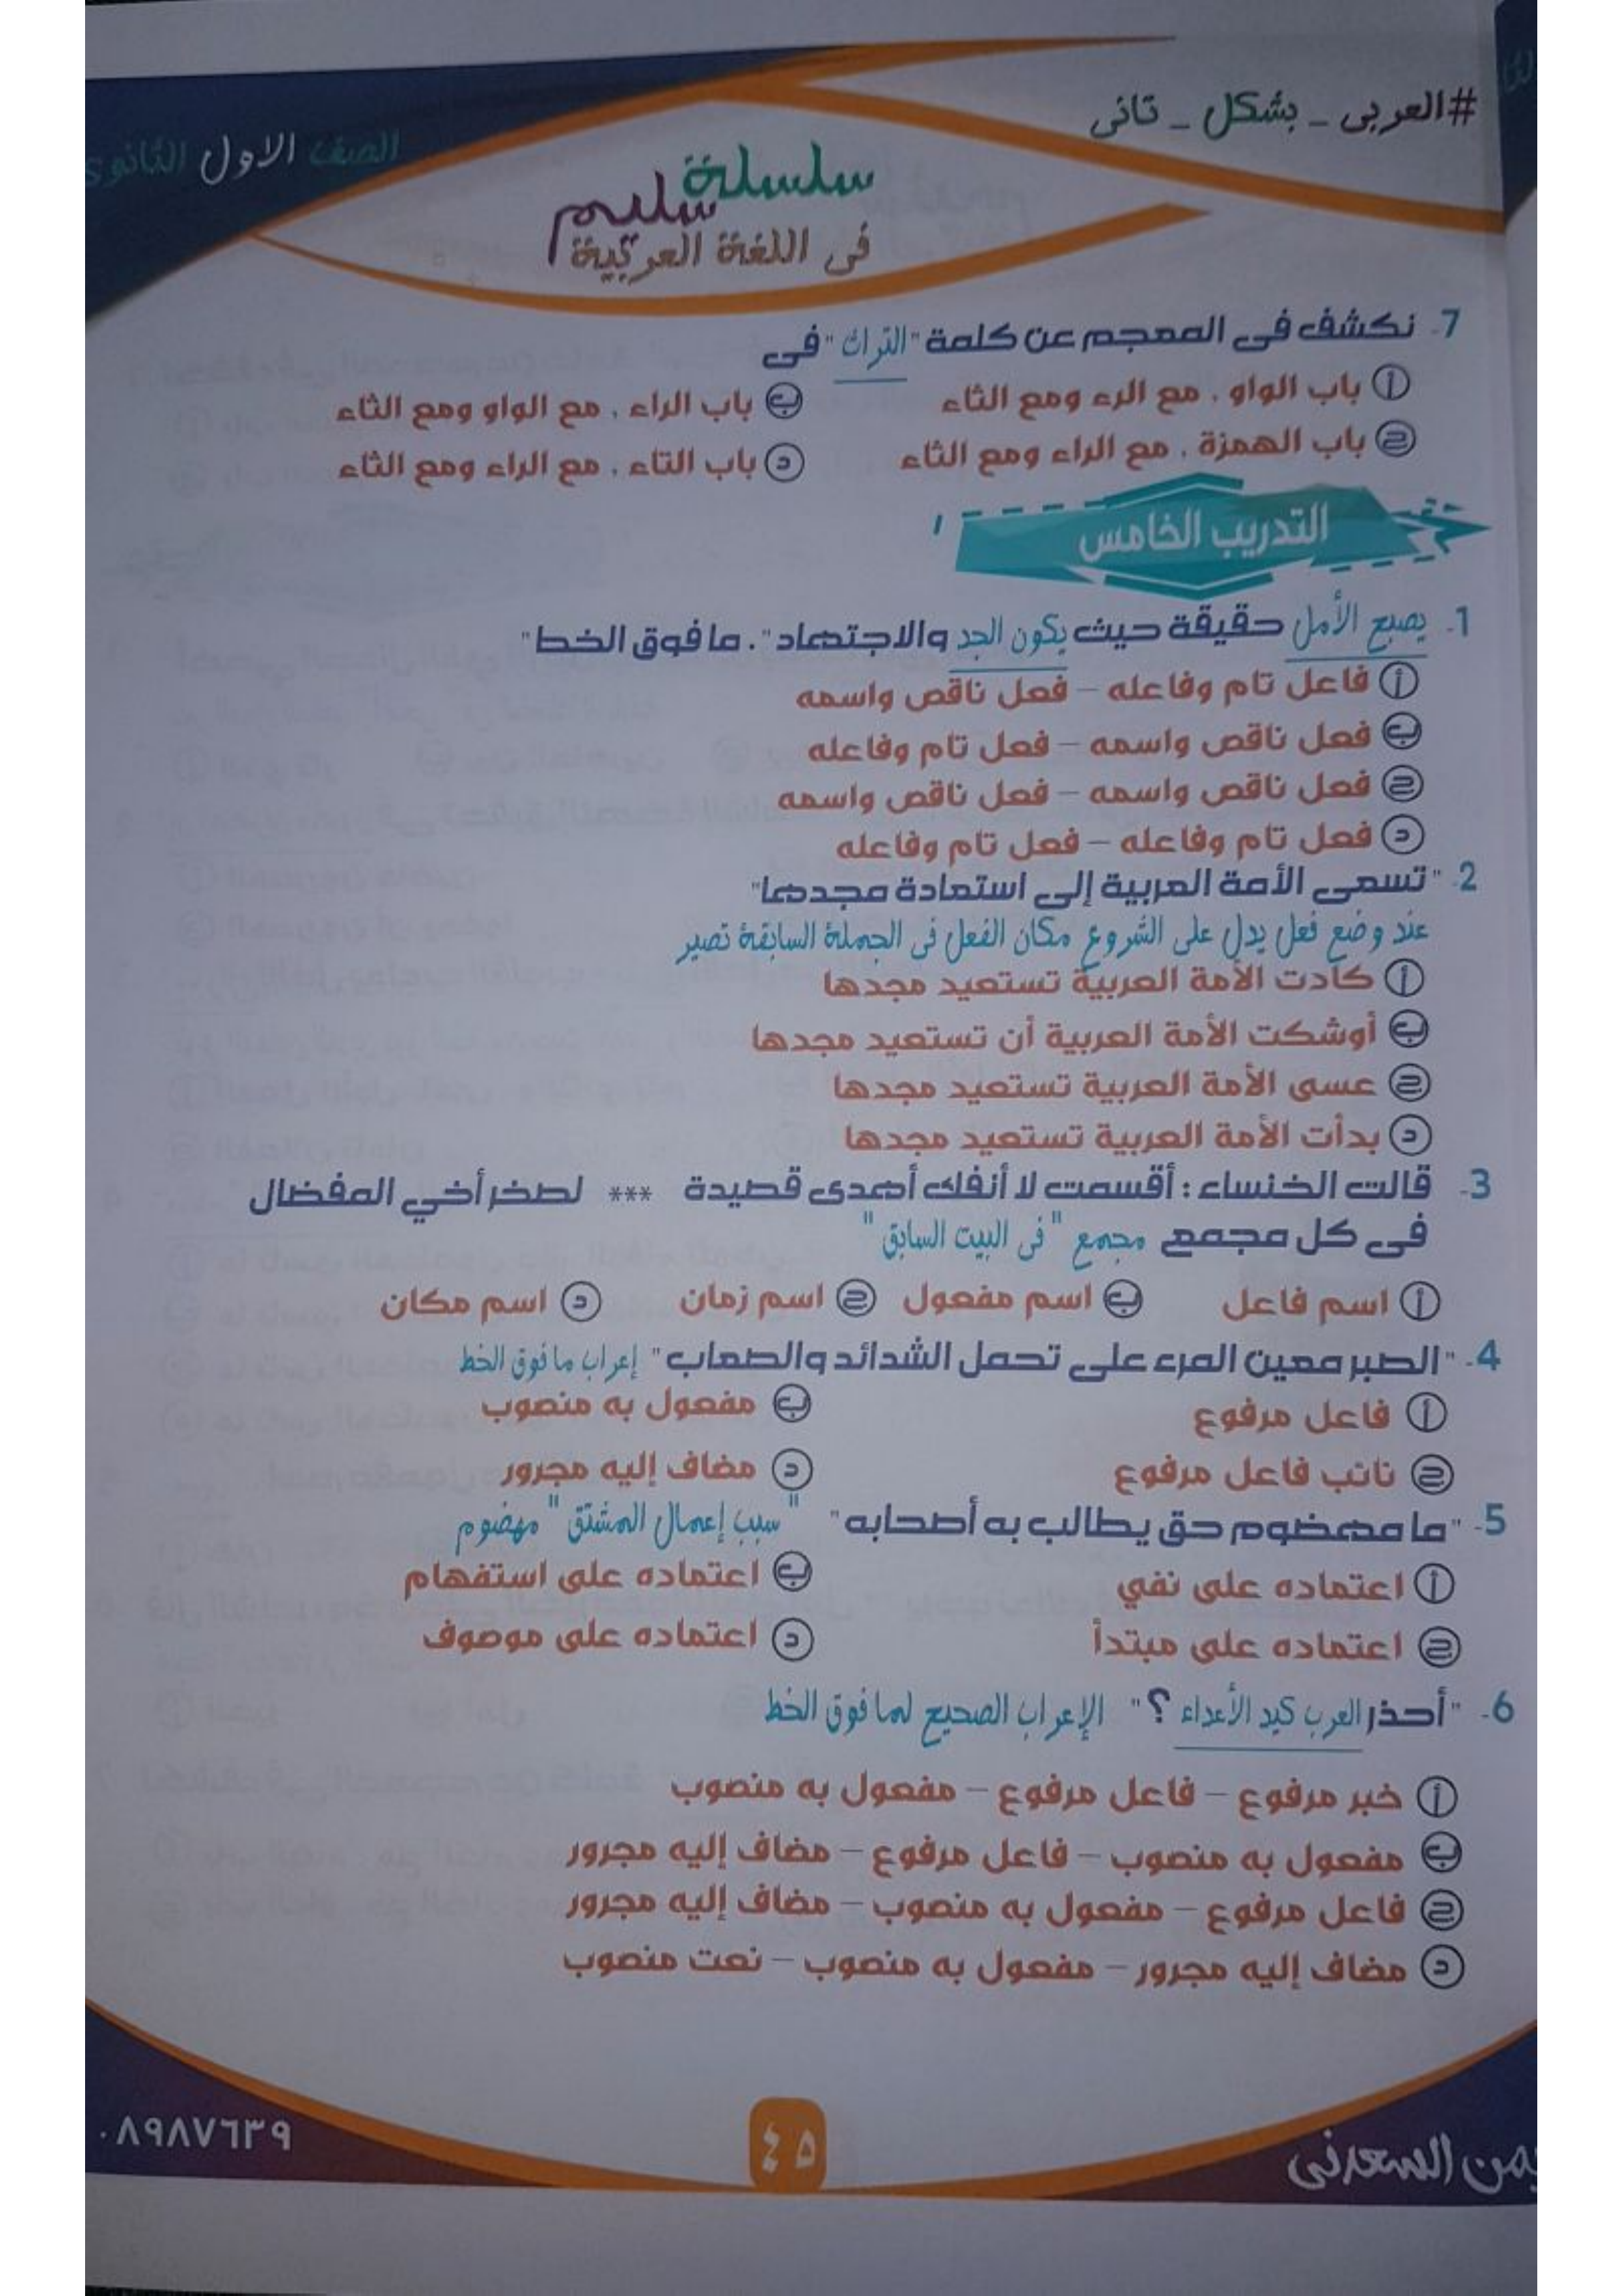 #العربى _ بشكل _ تانى
الصف الاول الثانوى
سلسلة
سليم
فى اللغة العربية
7- نكشف فى المعجم عن كلمة "التراث" فى
أ باب الواو ، مع الرء ومع الثاء ب باب الراء ، مع الواو ومع الثاء
ج باب الهمزة ، مع الراء ومع الثاء د باب التاء ، مع الراء ومع الثاء
التدريب الخامس
1- يصبح الأمل حقيقة حيث يكون الجد والاجتهاد". ما فوق الخط"
أ فاعل تام وفاعله – فعل ناقص واسمه
ب فعل ناقص واسمه – فعل تام وفاعله
ج فعل ناقص واسمه – فعل ناقص واسمه
د فعل تام وفاعله – فعل تام وفاعله
2- "تسعى الأمة العربية إلى استعادة مجدها"
عند وضع فعل يدل على الشروع مكان الفعل فى الجملة السابقة تصير
أ كادت الأمة العربية تستعيد مجدها
ب أوشكت الأمة العربية أن تستعيد مجدها
ج عسى الأمة العربية تستعيد مجدها
د بدأت الأمة العربية تستعيد مجدها
3- قالت الخنساء : أقسمت لا أنفك أهدى قصيدة *** لصخر أخي المفضال
فى كل مجمع مجمع "فى البيت السابق"
أ اسم فاعل ب اسم مفعول ج اسم زمان د اسم مكان
4- "الصبر معين المرء على تحمل الشدائد والصعاب" إعراب ما فوق الخط
أ فاعل مرفوع ب مفعول به منصوب
ج نائب فاعل مرفوع د مضاف إليه مجرور
5- "ما مهضوم حق يطالب به أصحابه" "سبب إعمال المشتق" مهضوم
أ اعتماده على نفي ب اعتماده على استفهام
ج اعتماده على مبتدأ د اعتماده على موصوف
6- "أحذر العرب كيد الأعداء ؟" الإعراب الصحيح لما فوق الخط
أ خبر مرفوع – فاعل مرفوع – مفعول به منصوب
ب مفعول به منصوب – فاعل مرفوع – مضاف إليه مجرور
ج فاعل مرفوع – مفعول به منصوب – مضاف إليه مجرور
د مضاف إليه مجرور – مفعول به منصوب – نعت منصوب
٠٨٩٨٧٦٣٩
٤٥
السعدنى